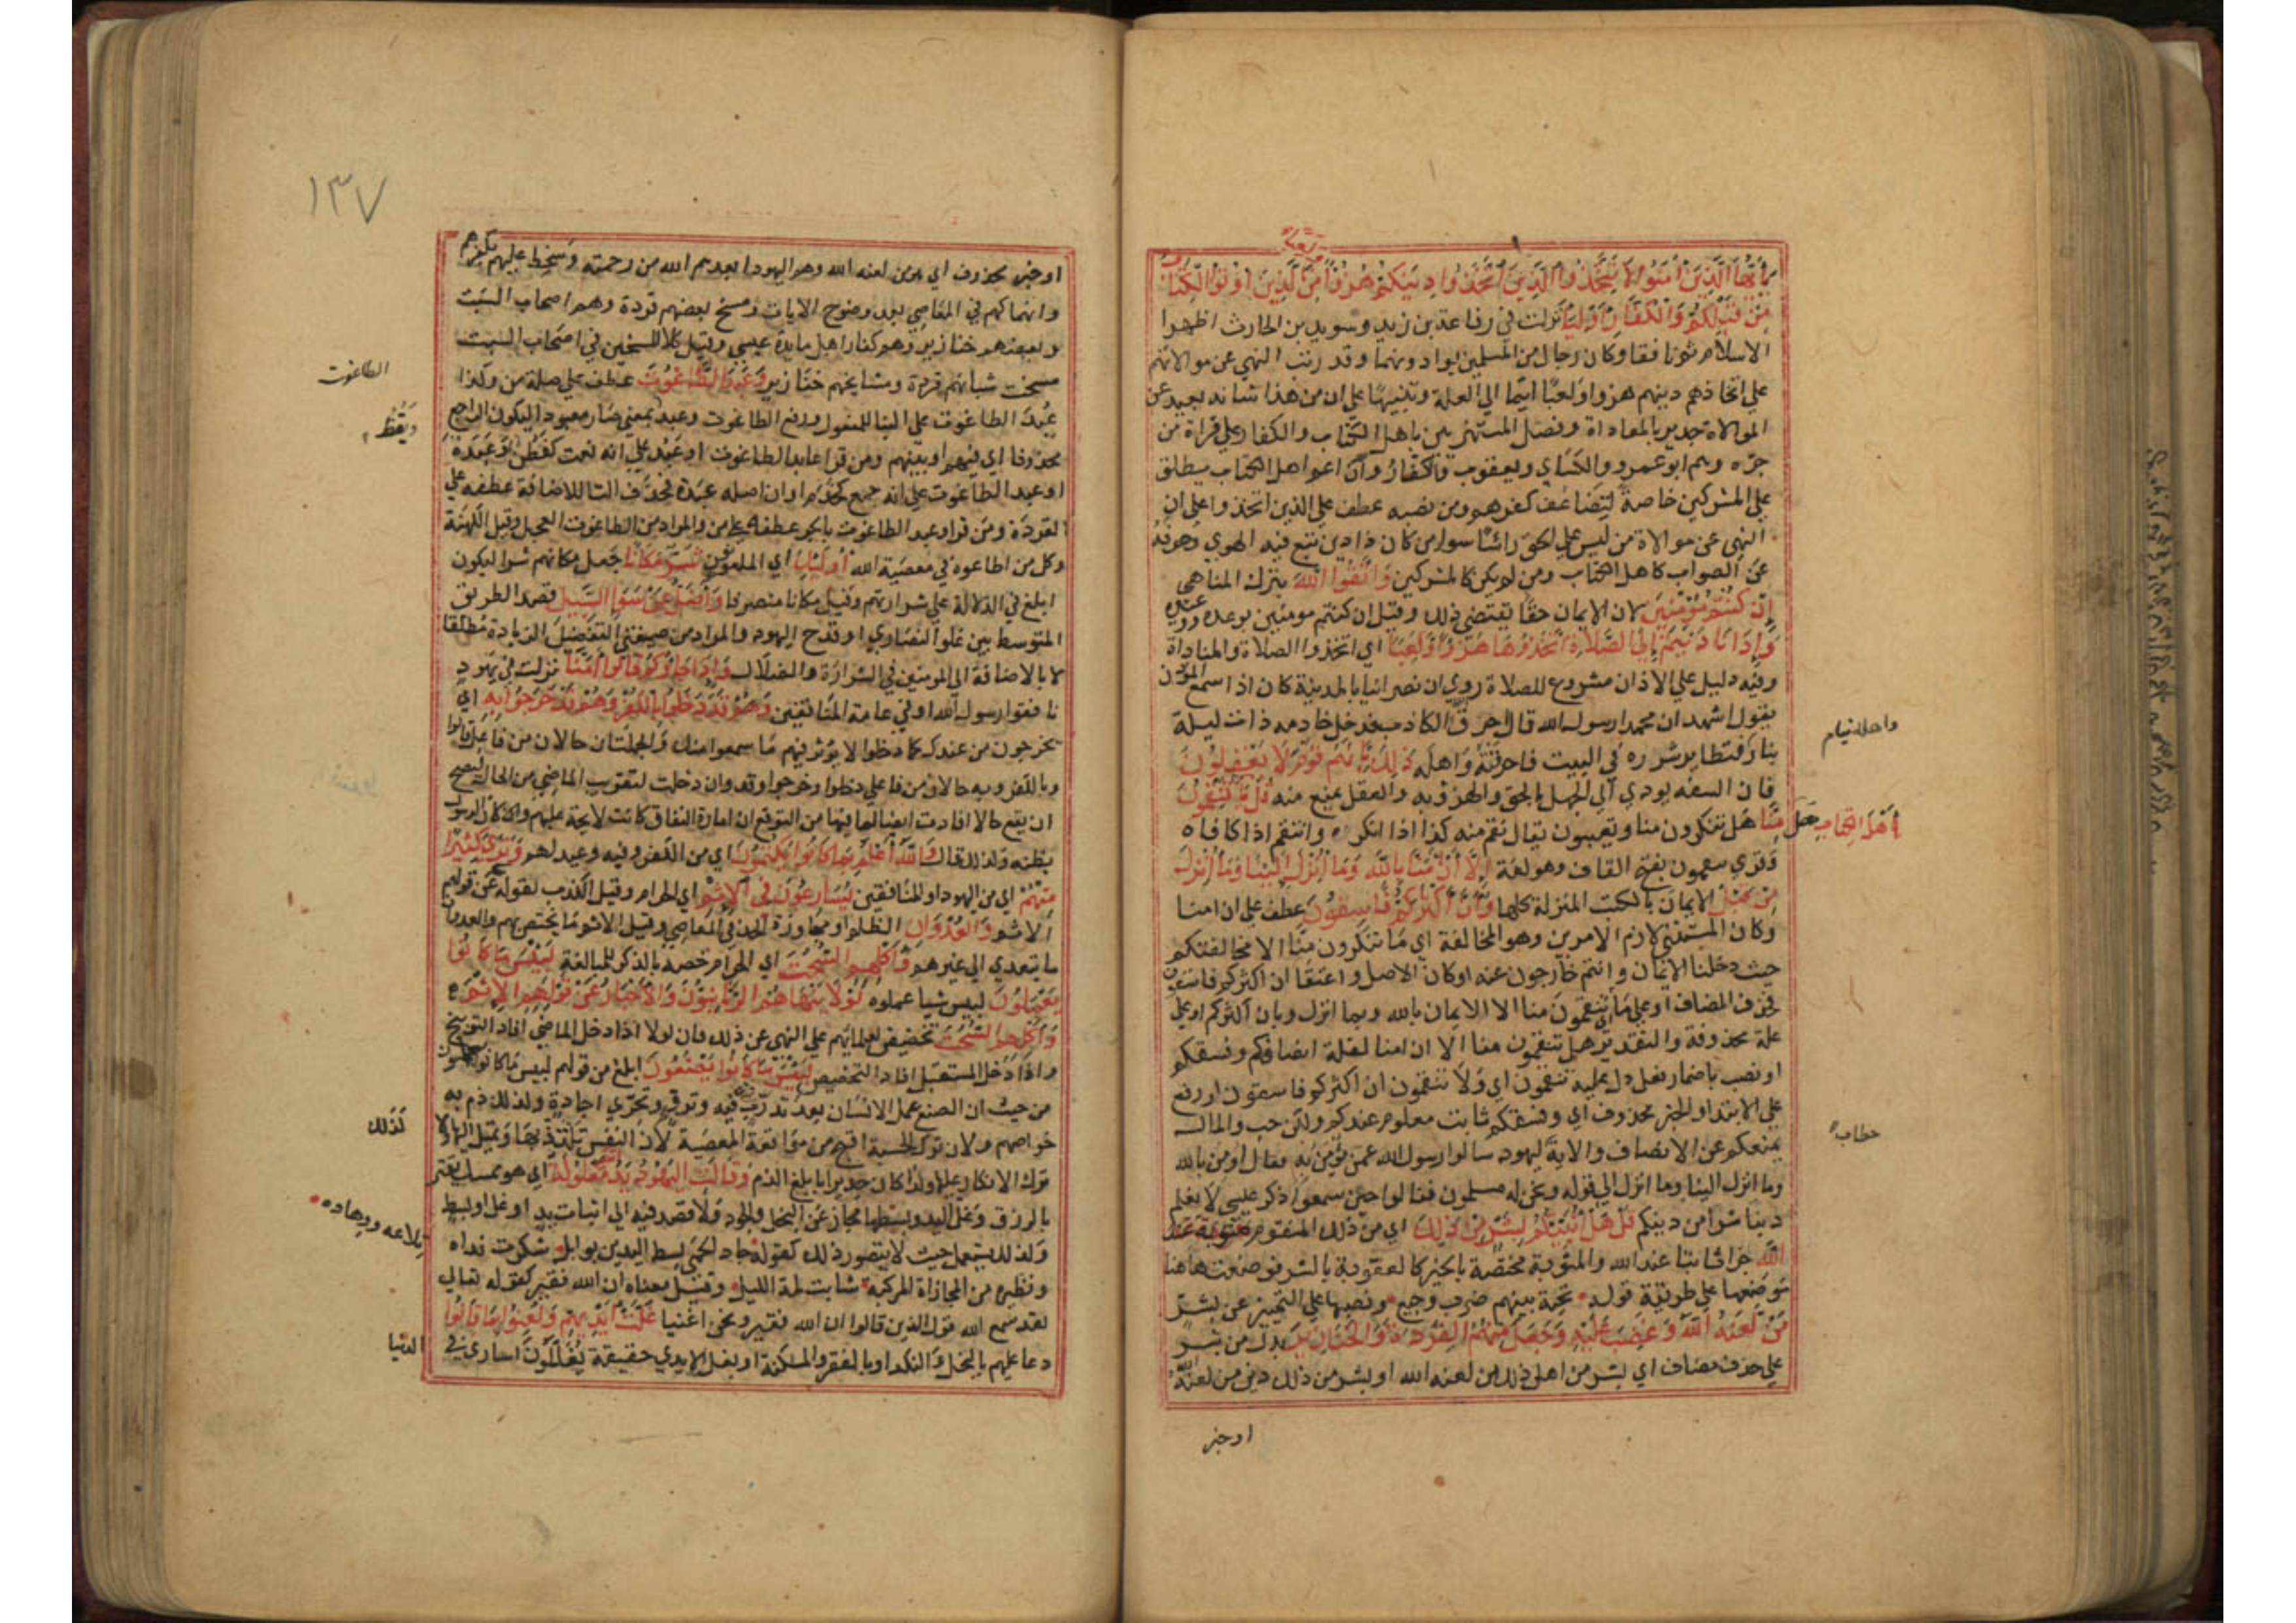 يا أيها الذين آمنوا لا تتخذوا الذين اتخذوا دينكم هزوا من الذين أوتوا الكتاب
من قبلكم والكفار أولياء نزلت في رفاعة بن زيد وسويد بن الحارث اظهرا
الاسلام ثم نافقا وكان رجال من المسلمين يوادونهما وقد رتب النهي عن موالاتهم
على اتخاذهم دينهم هزوا ولعبا ايما الي العلة وتنبيها على ان من هذا شانه بعيد عن
الموالاة جدير بالمعاداة وفصل المستهزئين باهل الكتاب والكفار على قراة من
جره وهم ابو عمرو والكسائي ويعقوب والكفار وان اعم اهل الكتاب يطلق
على المشركين خاصة لتضاعف كفرهم ومن نصبه عطف على الذين اتخذوا على ان
النهي عن موالاة من ليس على الحق رأسا سوا من كان ذا دين تبع فيه الهوي وحرفه
عن الصواب كاهل الكتاب ومن لم يكن كالمشركين واتقوا الله بترك المناهي
إن كنتم مؤمنين لان الايمان حقا يقتضي ذلك وقيل ان كنتم مومنين بوعده ووعيده
وإذا ناديتم إلى الصلاة اتخذوها هزوا ولعبا اي اتخذوا الصلاة والمناداة
وفيه دليل علي الاذان مشروع للصلاة روي ان نصرانيا بالمدينة كان اذا سمع المؤذن
يقول اشهد ان محمدا رسول الله قال احرق الكاذب فدخل خادمه ذات ليلة
واهله نيام
بنار فتطاير شرره في البيت فاحرقته واهله ذلك بأنهم قوم لا يعقلون
فان السفه يودي الي الجهل بالحق والهزؤ به والعقل يمنع منه قل يا
أهل الكتاب هل
تنقمون منا هل تنكرون منا وتعيبون يقال نقم منه كذا اذا انكره وانتقم اذا كافاه
وقري تنقمون بفتح القاف وهو لغة إلا أن آمنا بالله وما أنزل إلينا وما أنزل
من قبل الايمان بالكتب المنزلة كلها وأن أكثركم فاسقون عطف على ان امنا
وكان المستثني لازم الامرين وهو المخالفة اي ما تنكرون منا الا مخالفتكم
حيث دخلنا الايمان وانتم خارجون عنه او كان الاصل واعتقاد ان اكثركم فاسقون
فحذف المضاف او على ما اي تنقمون منا الا الايمان بالله وبما انزل وبان اكثركم او علي
علة محذوفة والتقدير هل تنقمون منا الا ان امنا لقلة انصافكم وفسقكم
او نصب باضمار فعل دل عليه تنقمون اي ولا تنقمون ان اكثركم فاسقون او رفع
علي الابتدا والخبر محذوف اي وفسقكم ثابت معلوم عندكم ولكن حب والمال
يمنعكم عن الانصاف والاية ليهود سالوا رسول الله عمن يؤمن به فقال اومن بالله
خطاب
وما انزل الينا وما انزل الي قوله ونحن له مسلمون فقالوا حين سمعوا ذكر عيسى لا نعلم
دينا شرا من دينكم قل هل أنبئكم بشر من ذلك اي من ذلك المنقوم مثوبة عند
الله جزا ثابتا عند الله والمثوبة مختصة بالخير كالعقوبة بالشر فوضعت هاهنا
موضعها علي طريقة قوله تحية بينهم ضرب وجيع ونصبها على التمييز عن بشر
من لعنه الله وغضب عليه وجعل منهم القردة والخنازير بدل من بشر
علي حذف مضاف اي بشر من اهل ذلك من لعنه الله او بشر من ذلك دين من لعنه الله
او خبر
١٣٧
او خبر محذوف اي هو من لعنه الله وهم اليهود ابعدهم الله من رحمته وسخط عليهم بكفرهم
وانهماكهم في المعاصي بعد وضوح الايات ومسخ بعضهم قردة وهم اصحاب السبت
وبعضهم خنازير وهم كفار اهل مايدة عيسى وقيل كلا المسخين في اصحاب السبت
مسخت شبانهم قردة ومشايخهم خنازير وعبد الطاغوت عطف على صلة من وكذا
الطاغوت
عبد الطاغوت على البنا للمفعول ورفع الطاغوت وعبد بمعني صار معبودا فيكون الراجع
ويقظ
محذوفا اي فيهم او بينهم ومن قرا عابد الطاغوت او عبد علي انه نعت كفطن او عبدة
او عبد الطاغوت علي انه جمع كخدم او ان اصله عبدة فحذف التا للاضافة عطفه علي
القردة ومن قرا وعبد الطاغوت بالجر عطفه على من والمراد من الطاغوت العجل وقيل الكهنة
وكل من اطاعوه في معصية الله أولئك اي الملعونون شر مكانا جعل مكانهم شرا ليكون
ابلغ في الدلالة علي شرارتهم وقيل مكانا منصرفا وأضل عن سواء السبيل قصد الطريق
المتوسط بين غلو النصاري وقدح اليهود والمراد من صيغتي التفضيل الزيادة مطلقا
لا بالاضافة الي المومنين في الشرارة والضلال وإذا جاؤكم قالوا آمنا نزلت في يهود
نافقوا رسول الله او في عامة المنافقين وقد دخلوا بالكفر وهم قد خرجوا به اي
يخرجون من عندك كما دخلوا لا يؤثر فيهم ما سمعوا منك والجملتان حالان من فاعل قالوا
وبالكفر وبه حالان من فاعلي دخلوا وخرجوا وقد وان دخلت لتقريب الماضي من الحال ليصح
ان يقع حالا افادت ايضا لما فيها من التوقع ان امارة النفاق كانت لايحة عليهم وكان الرسول
يظنه ولذلك قال والله أعلم بما كانوا يكتمون اي من الكفر وفيه وعيد لهم وترى كثيرا
منهم اي من اليهود او المنافقين يسارعون في الإثم اي الحرام وقيل الكذب لقوله عن قولهم
الاثم والعدوان الظلم او مجاوزة الحد في المعاصي وقيل الاثم ما يختص بهم والعدوان
ما يتعدي الي غيرهم وأكلهم السحت اي الحرام خصه بالذكر للمبالغة لبئس ما كانوا
يعملون لبيس شيا عملوه لولا ينهاهم الربانيون والأحبار عن قولهم الإثم
وأكلهم السحت تحضيض لعلمايهم علي النهي عن ذلك فان لولا اذا دخل الماضي افاد التوبيخ
واذا دخل المستقبل افاد التحضيض لبئس ما كانوا يصنعون ابلغ من قولهم لبيس ما كانوا يعملون
من حيث ان الصنع عمل الانسان بعد تدرب فيه وترو وتحري اجادة ولذلك ذم به
لذلك
خواصهم ولان ترك الحسبة اقبح من مواقعة المعصية لان النفس تلتذ بها وتميل اليها ولا
ترك الانكار عليها ولذا كان جديرا بابلغ الذم وقالت اليهود يد الله مغلولة اي هو ممسك يقتر
بالرزق وغل اليد وبسطها مجاز عن البخل والجود ولا قصد فيه الي اثبات يد او غل او بسط
تلاعه ووهاده
ولذلك يستعمل حيث لا يتصور ذلك كقوله جاد الحمي بسط اليدين بوابل شكرت نداه
ونظيره من المجازاة المركبة شابت لمة الليل وقيل معناه ان الله فقير كقوله تعالي
لقد سمع الله قول الذين قالوا ان الله فقير ونحن اغنيا غلت أيديهم ولعنوا بما قالوا
دعا عليهم بالبخل والنكد او بالفقر والمسكنة او بغل الايدي حقيقة يغلون اساري في
الدنيا